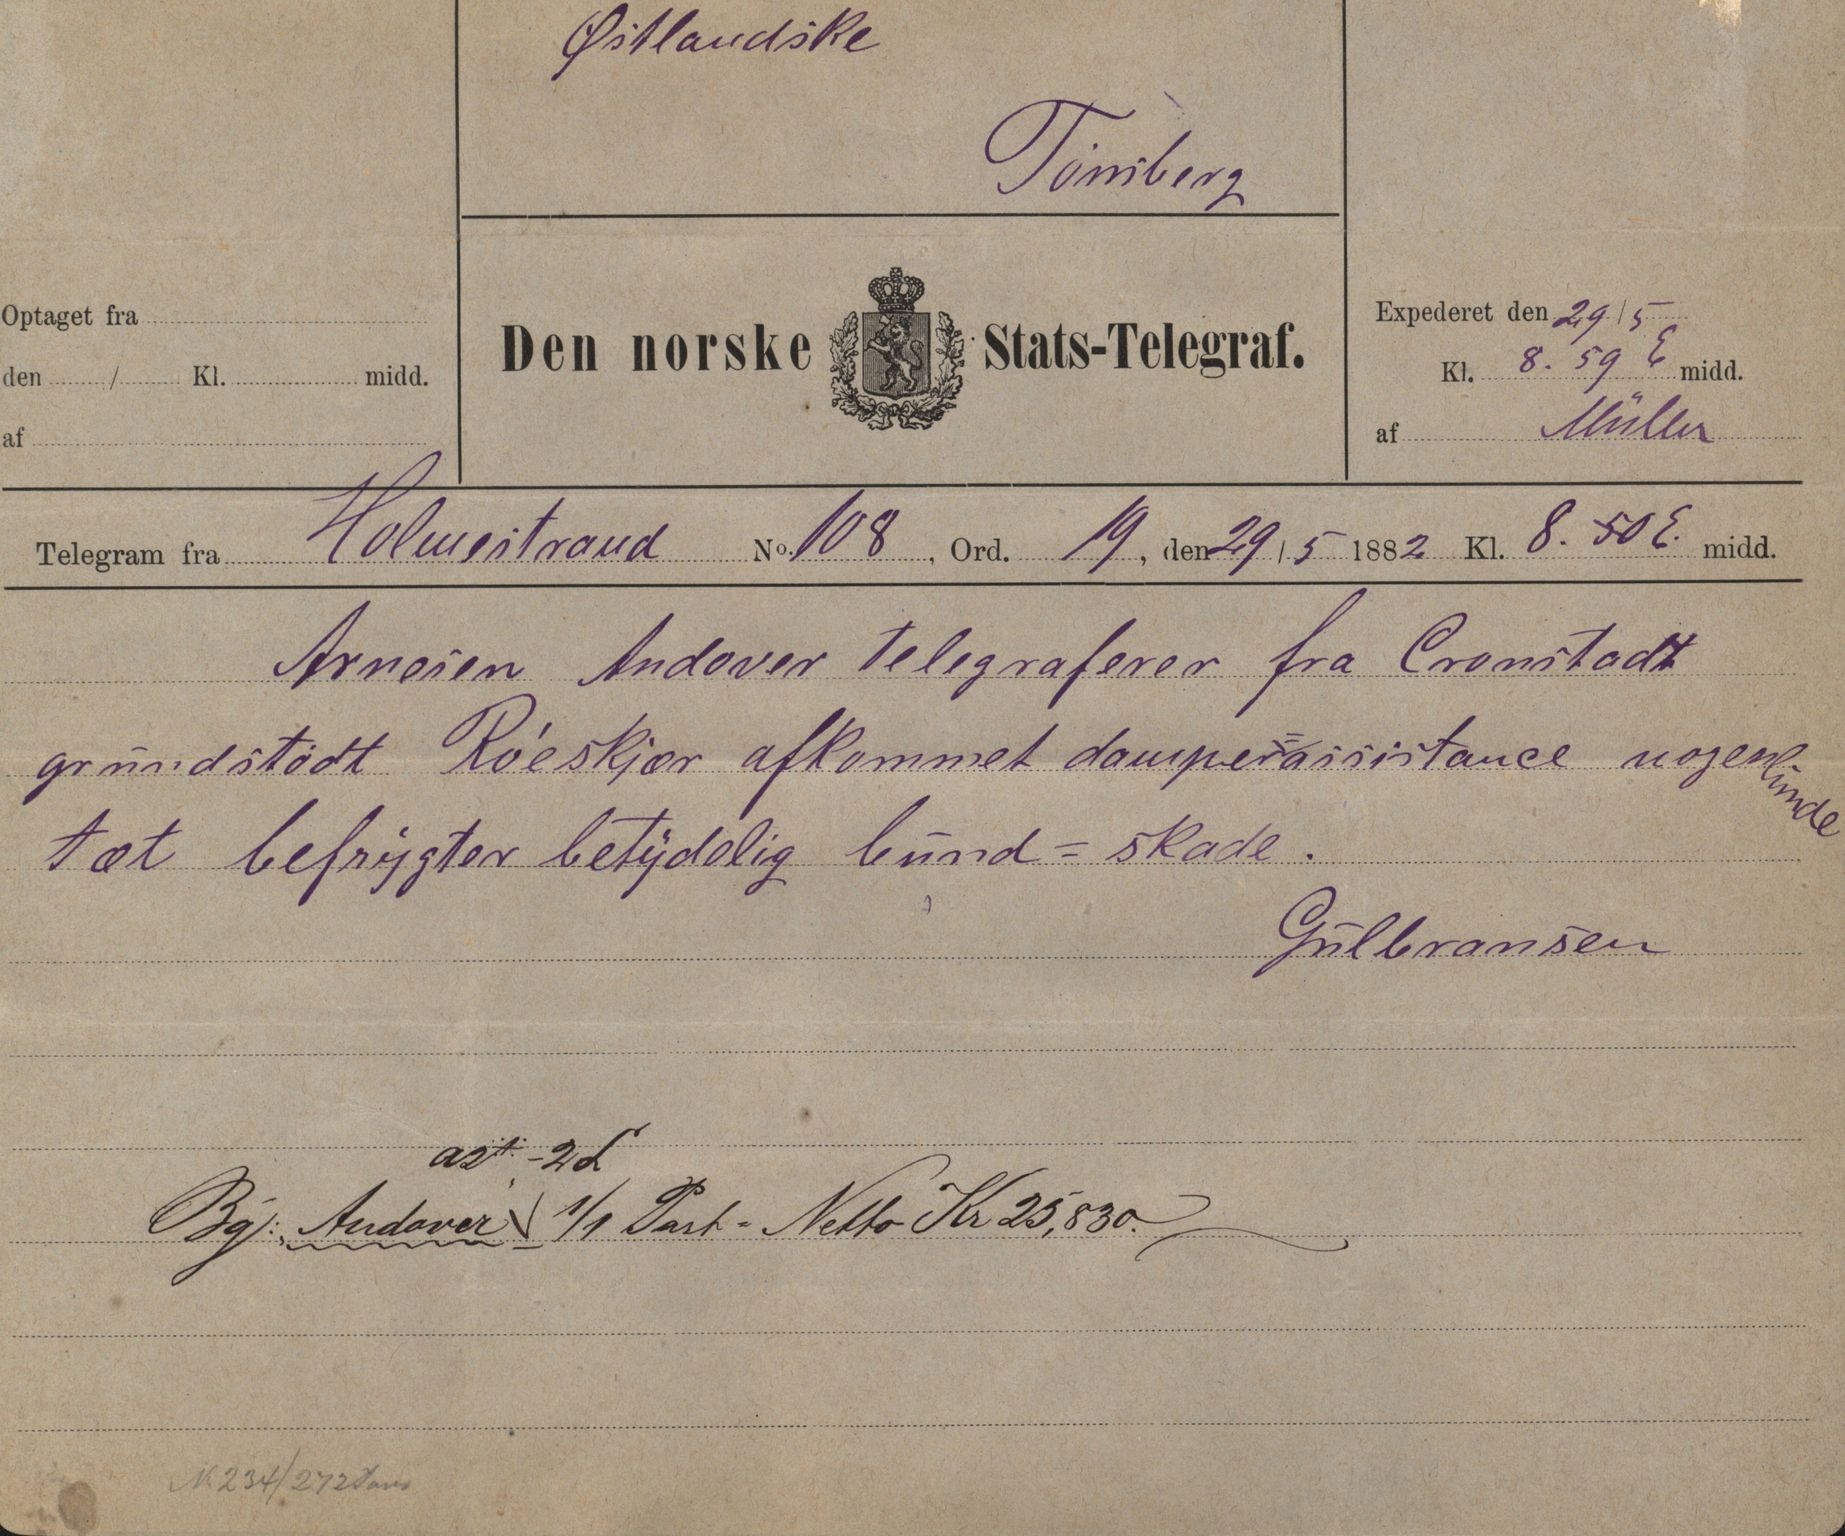 Østlandske
Tönsberg
Optaget fra
den / Kl. midd.
af
Den norske Stats-Telegraf.
Expederet den 29/5
Kl. 8.59 E midd.
af Müller
Telegram fra Holmestrand No. 108, Ord. 19, den 29/5 1882 Kl. 8.50 E. midd.
Arnesen Andover telegraferer fra Cronstadt
grundstødt Röeskjær afkommet damperassistance nogenlunde
tæt befrygter betydelig bund=skade.
Gulbransen
Bg: Andover 1/1 Part - Netto Kr 25,830.
N. 234/272